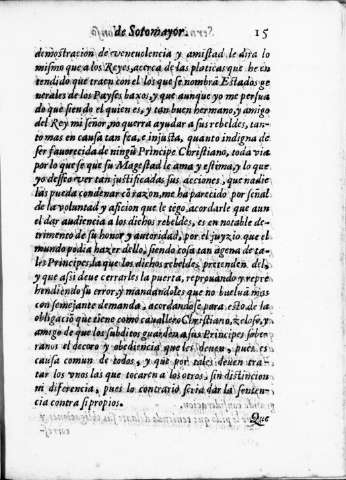 de Sotomayor. 15
demostracion de veneuolencia y amistad le dira lo
mismo que a los Reyes, acerca de las platicas que he en
tendido que traen con el los que se nombrã Estados ge
nerales de los Payses baxos, y que aunque yo me persua
do que siendo el quien es, y tan buen hermano, y amigo
del Rey mi señor, no querra ayudar a sus rebeldes, tan-
to mas en causa tan fea, e injusta, quanto indigna de
ser fauorecida de ningũ Principe Christiano, toda via
por lo que se que su Magestad le ama y estima, y lo que
yo desseo ver tan justificadas sus acciones, que nadie
las pueda condenar cõ razon, me ha parecido por señal
de la voluntad y aficion que le tẽgo, acordarle que aun
el dar audiencia a los dichos rebeldes, es en notable de-
trimento de su honor y autoridad, por el juyzio que el
mundo podia hazer dello, siendo cosa tan agena de ta-
les Principes, la que los dichos rebeldes pretenden del,
y que assi deue cerrarles la puerta, reprouando y repre
hendiendo su error, y mandandoles que no bueluã mas
con semejante demanda, acordandose para esto de la
obligaciõ que tiene como cauallero Christiano, zeloso, y
amigo de que los subditos guarden a sus Principes sober
ranos el decoro y obediencia que les deuen, pues es
causa comun de todos, y que por tales deuen tra-
tar los vnos las que tocaren a los otros, sin distincion
ni diferencia, pues lo contrario seria dar la senten-
cia contra si propios.
Que